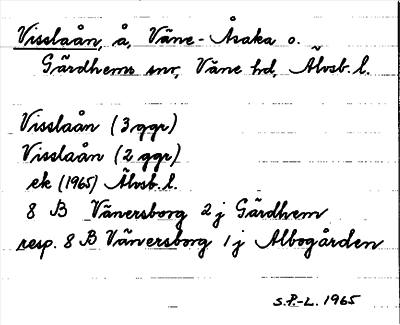 Visslaån, å, Väne-Åsaka o.
Gärdhems snr, Väne hd, Älvsb. l.
Visslaån (3 ggr)
Visslaån (2 ggr)
ek (1965) Älvsb. l.
8 B Vänersborg 2 j Gärdhem
resp. 8 B Vänersborg 1 j Albogården
S.P.-L. 1965